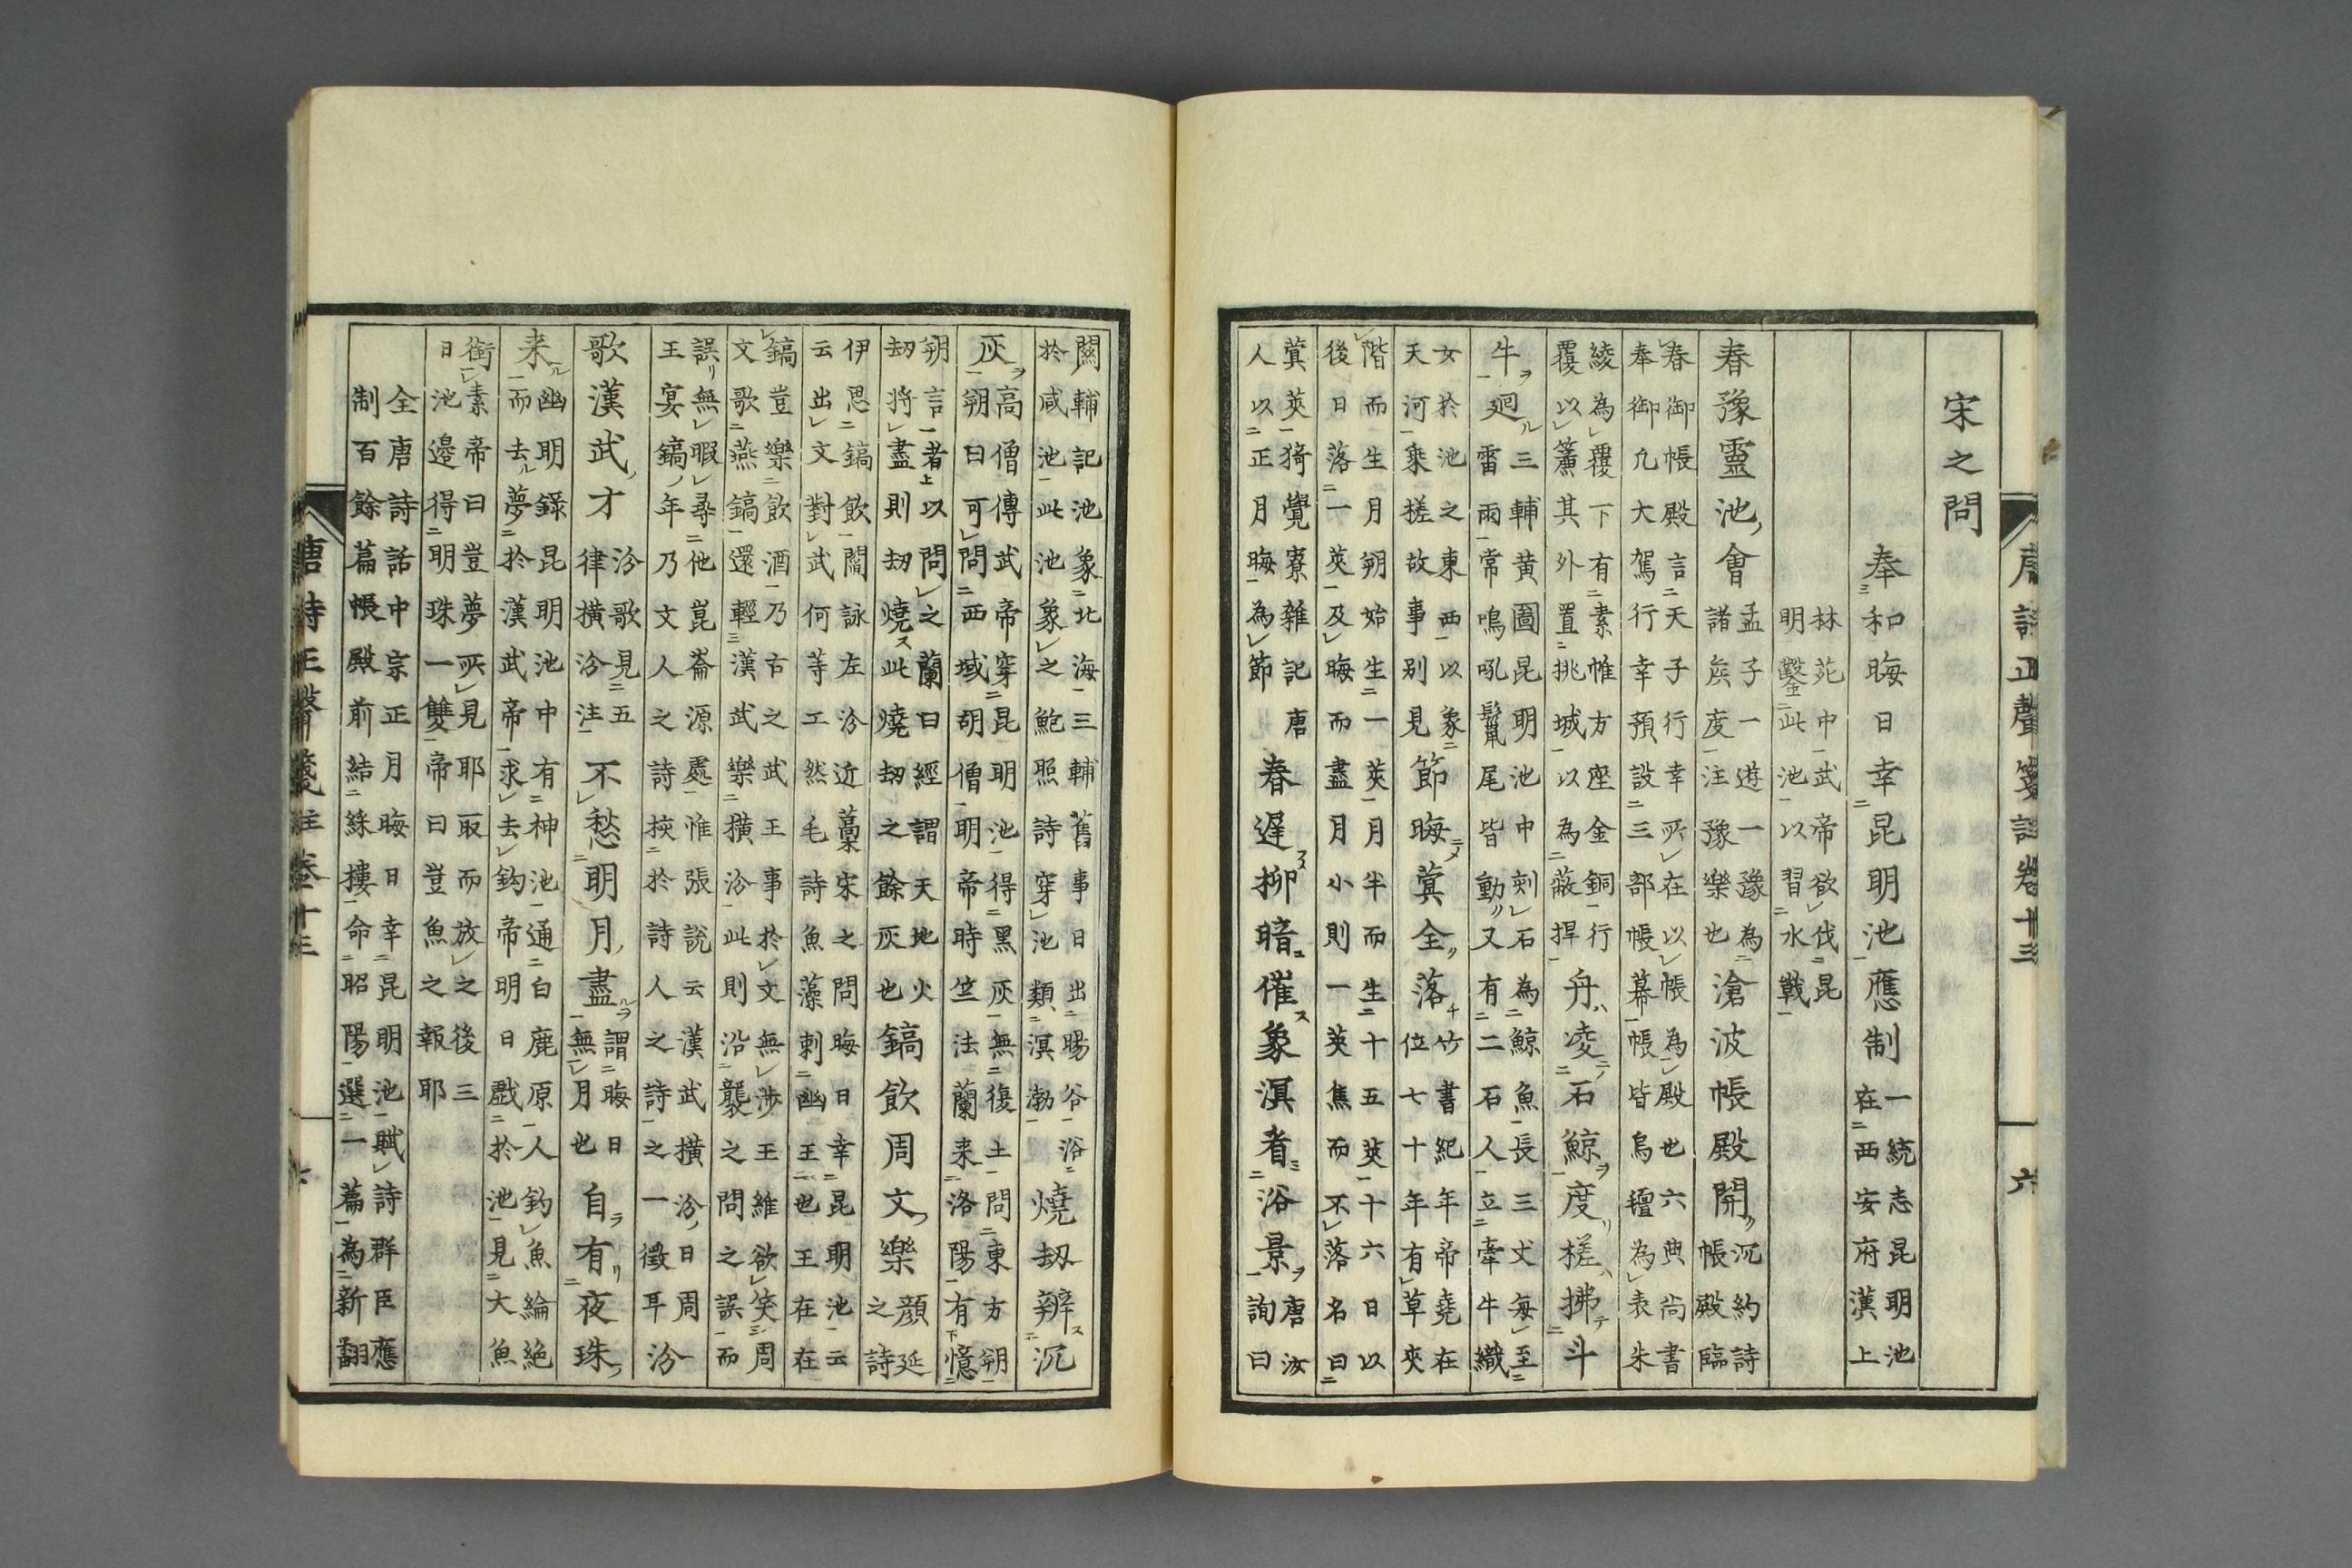 唐詩正聲箋註卷十三 六
宋之問
奉和晦日幸昆明池應制一統志昆明池在西安府漢上
林苑中武帝欲伐昆明鑿此池以習水戰
春豫靈池會孟子一遊一豫為諸矦度注豫樂也滄波帳殿開沉約詩帳殿臨
春御帳殿言天子行幸所在以帳為殿也六典尚書奉御凢大駕行幸預設三部帳幕帳皆烏氊為表朱
綾為覆下有素帷方座金銅行覆以簾其外置挑城以為蔽捍舟凌石鯨度槎拂斗
牛廻三輔黄圖昆明池中刻石為鯨魚長三丈每至雷雨常鳴吼鬣尾皆動又有二石人立牽牛織
女於池之東西以象天河乘槎故事别見節晦蓂全落竹書紀年帝堯在位七十年有草夾
階而生月朔始生一莢月半而生十五莢十六日以後日落一莢及晦而盡月小則一莢焦而不落名曰
蓂莢猗覺寮雜記唐人以正月晦為節春遲柳暗催象溟看浴景唐汝詢曰
關輔記池象北海三輔舊事日出暘谷浴於咸池此池象之鮑照詩穿池類溟渤燒劫辨沉
灰高僧傳武帝穿昆明池得黑灰無復土問東方朔朔曰可問西域胡僧明帝時竺法蘭来洛陽有憶
朔言者以問之蘭曰經謂天地火劫将盡則劫燒此燒劫之餘灰也鎬飲周文樂顔延之詩
伊思鎬飲閣詠左汾近藁宋之問晦日幸昆明池云云出文對武何等工然毛詩魚藻刺幽王也王在在
鎬豈樂飲酒乃古之武王事於文無渉王維欲笑周文歌燕鎬還輕漢武樂橫汾此則沿襲之問之誤而
誤無暇尋他崑崙源處惟張說云漢武橫汾日周王宴鎬年乃文人之詩挾於詩人之詩之一徵耳汾
歌漢武才汾歌見五律橫汾注不愁明月盡謂晦日無月也自有夜珠
来幽明録昆明池中有神池通白鹿原人釣魚綸絶而去夢於漢武帝求去鈎帝明日戲於池見大魚
銜素帝曰豈夢所見耶取而放之後三日池邉得明珠一雙帝曰豈魚之報耶
全唐詩話中宗正月晦日幸昆明池賦詩群臣應制百餘篇帳殿前結綵摟命昭陽選一篇為新翻
唐詩正聲箋註卷十三